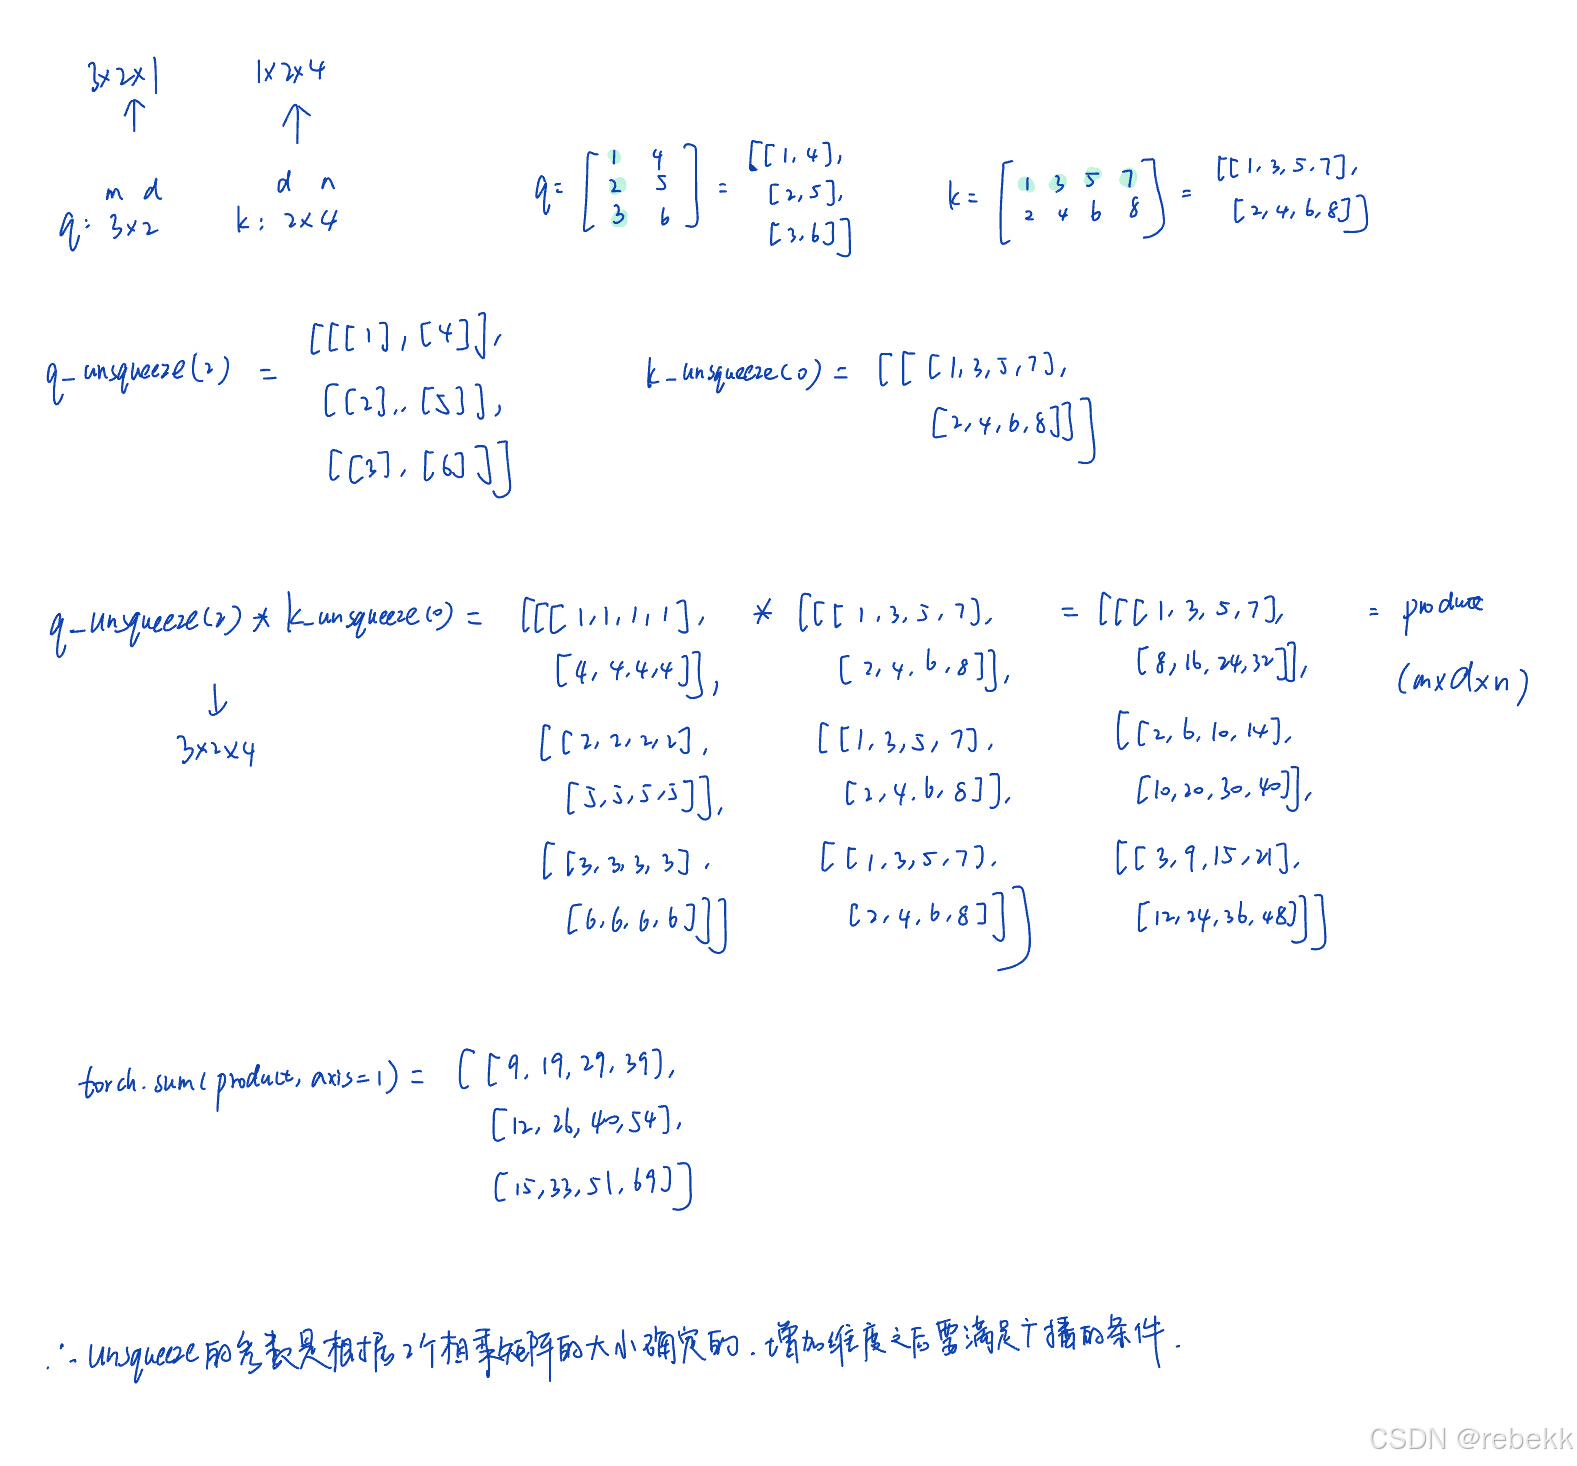 3×2×1 1×2×4
↑ ↑
m d d n
q: 3×2 k: 2×4
q= [1 4 = [[1,4],
2 5 [2,5],
3 6] [3,6]]
k= [1 3 5 7 = [[1,3,5,7],
2 4 6 8] [2,4,6,8]]
q_unsqueeze(2) = [[[1],[4]],
[[2],[5]],
[[3],[6]]]
k_unsqueeze(0) = [[[1,3,5,7],
[2,4,6,8]]]
q_unsqueeze(2) * k_unsqueeze(0) = [[[1,1,1,1], * [[[1,3,5,7], = [[[1,3,5,7], = product
[4,4,4,4]], [2,4,6,8]], [8,16,24,32]], (m×d×n)
↓
3×2×4 [[2,2,2,2], [[1,3,5,7], [[2,6,10,14],
[5,5,5,5]], [2,4,6,8]], [10,20,30,40]],
[[3,3,3,3], [[1,3,5,7], [[3,9,15,21],
[6,6,6,6]]] [2,4,6,8]]] [12,24,36,48]]]
torch.sum(product, axis=1) = [[9,19,29,39],
[12,26,40,54],
[15,33,51,69]]
∴ unsqueeze的参数是根据2个相乘矩阵的大小确定的.增加维度之后需满足广播的条件.
CSDN @rebekk